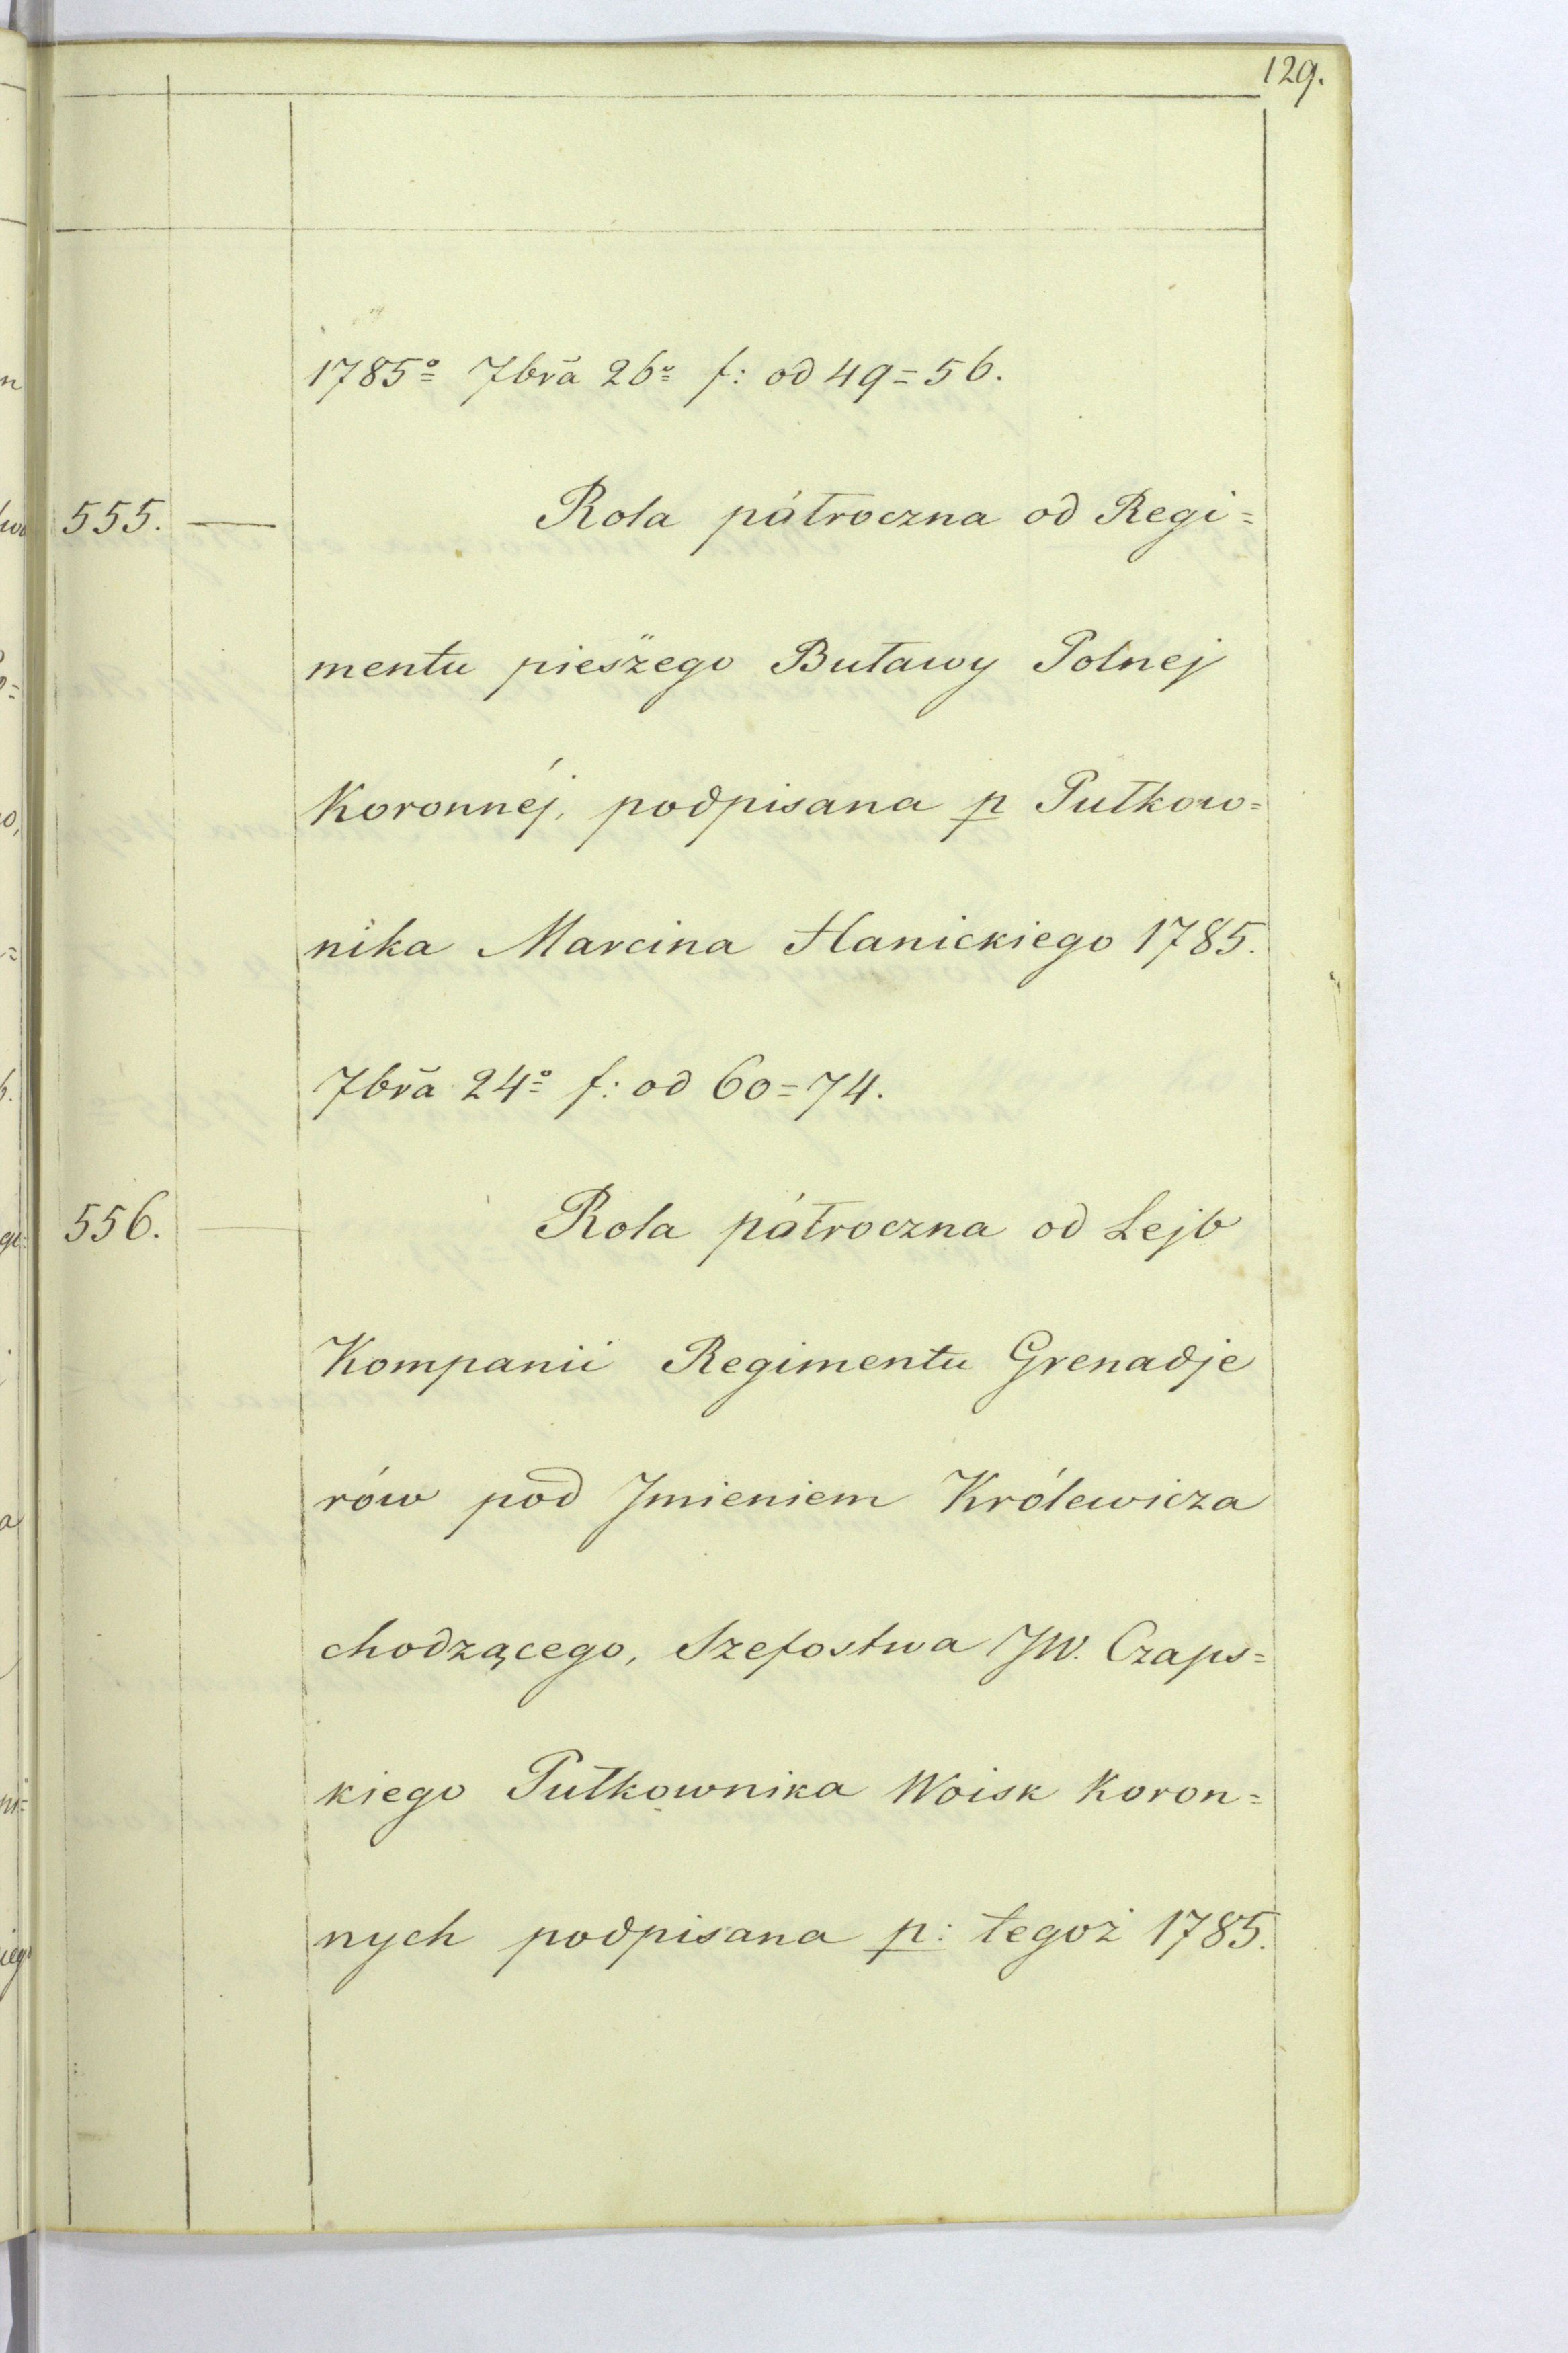 129.
1785º 7bra 26º f: od 49=56.
555. — Rola półroczna od Regi=
mentu pieszego Buławy Polnej
Koronnéj, podpisana p Pułkow=
nika Marcina Hanickiego 1785.
7bra 24º f: od 60=74.
556. — Rola półroczna od Lejb
Kompanii Regimentu Grenadje
rów pod Jmieniem Królewicza
chodzącego, Szefostwa JW. Czaps=
kiego Pułkownika Woisk Koron=
nych podpisana p: tegoż 1785.